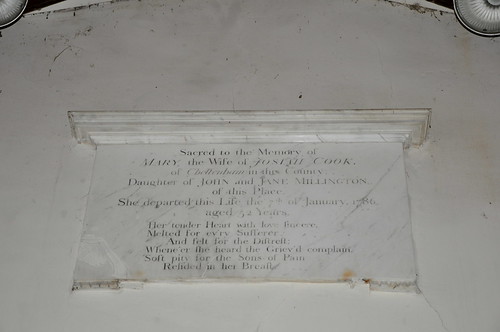 Sacred to the Memory of
MARY, the Wife of JOSEPH COOK,
of Cheltenham in this County.
Daughter of JOHN and JANE MILLINGTON
of this Place.
She departed this Life the 7th of January, 1786,
aged 52 Years.
Her tender Heart with love sincere,
Melted for ev'ry Sufferer,
And felt for the Distrest:
Whene'er she heard the Griev'd complain,
Soft pity for the Sons of Pain
Resided in her Breast.